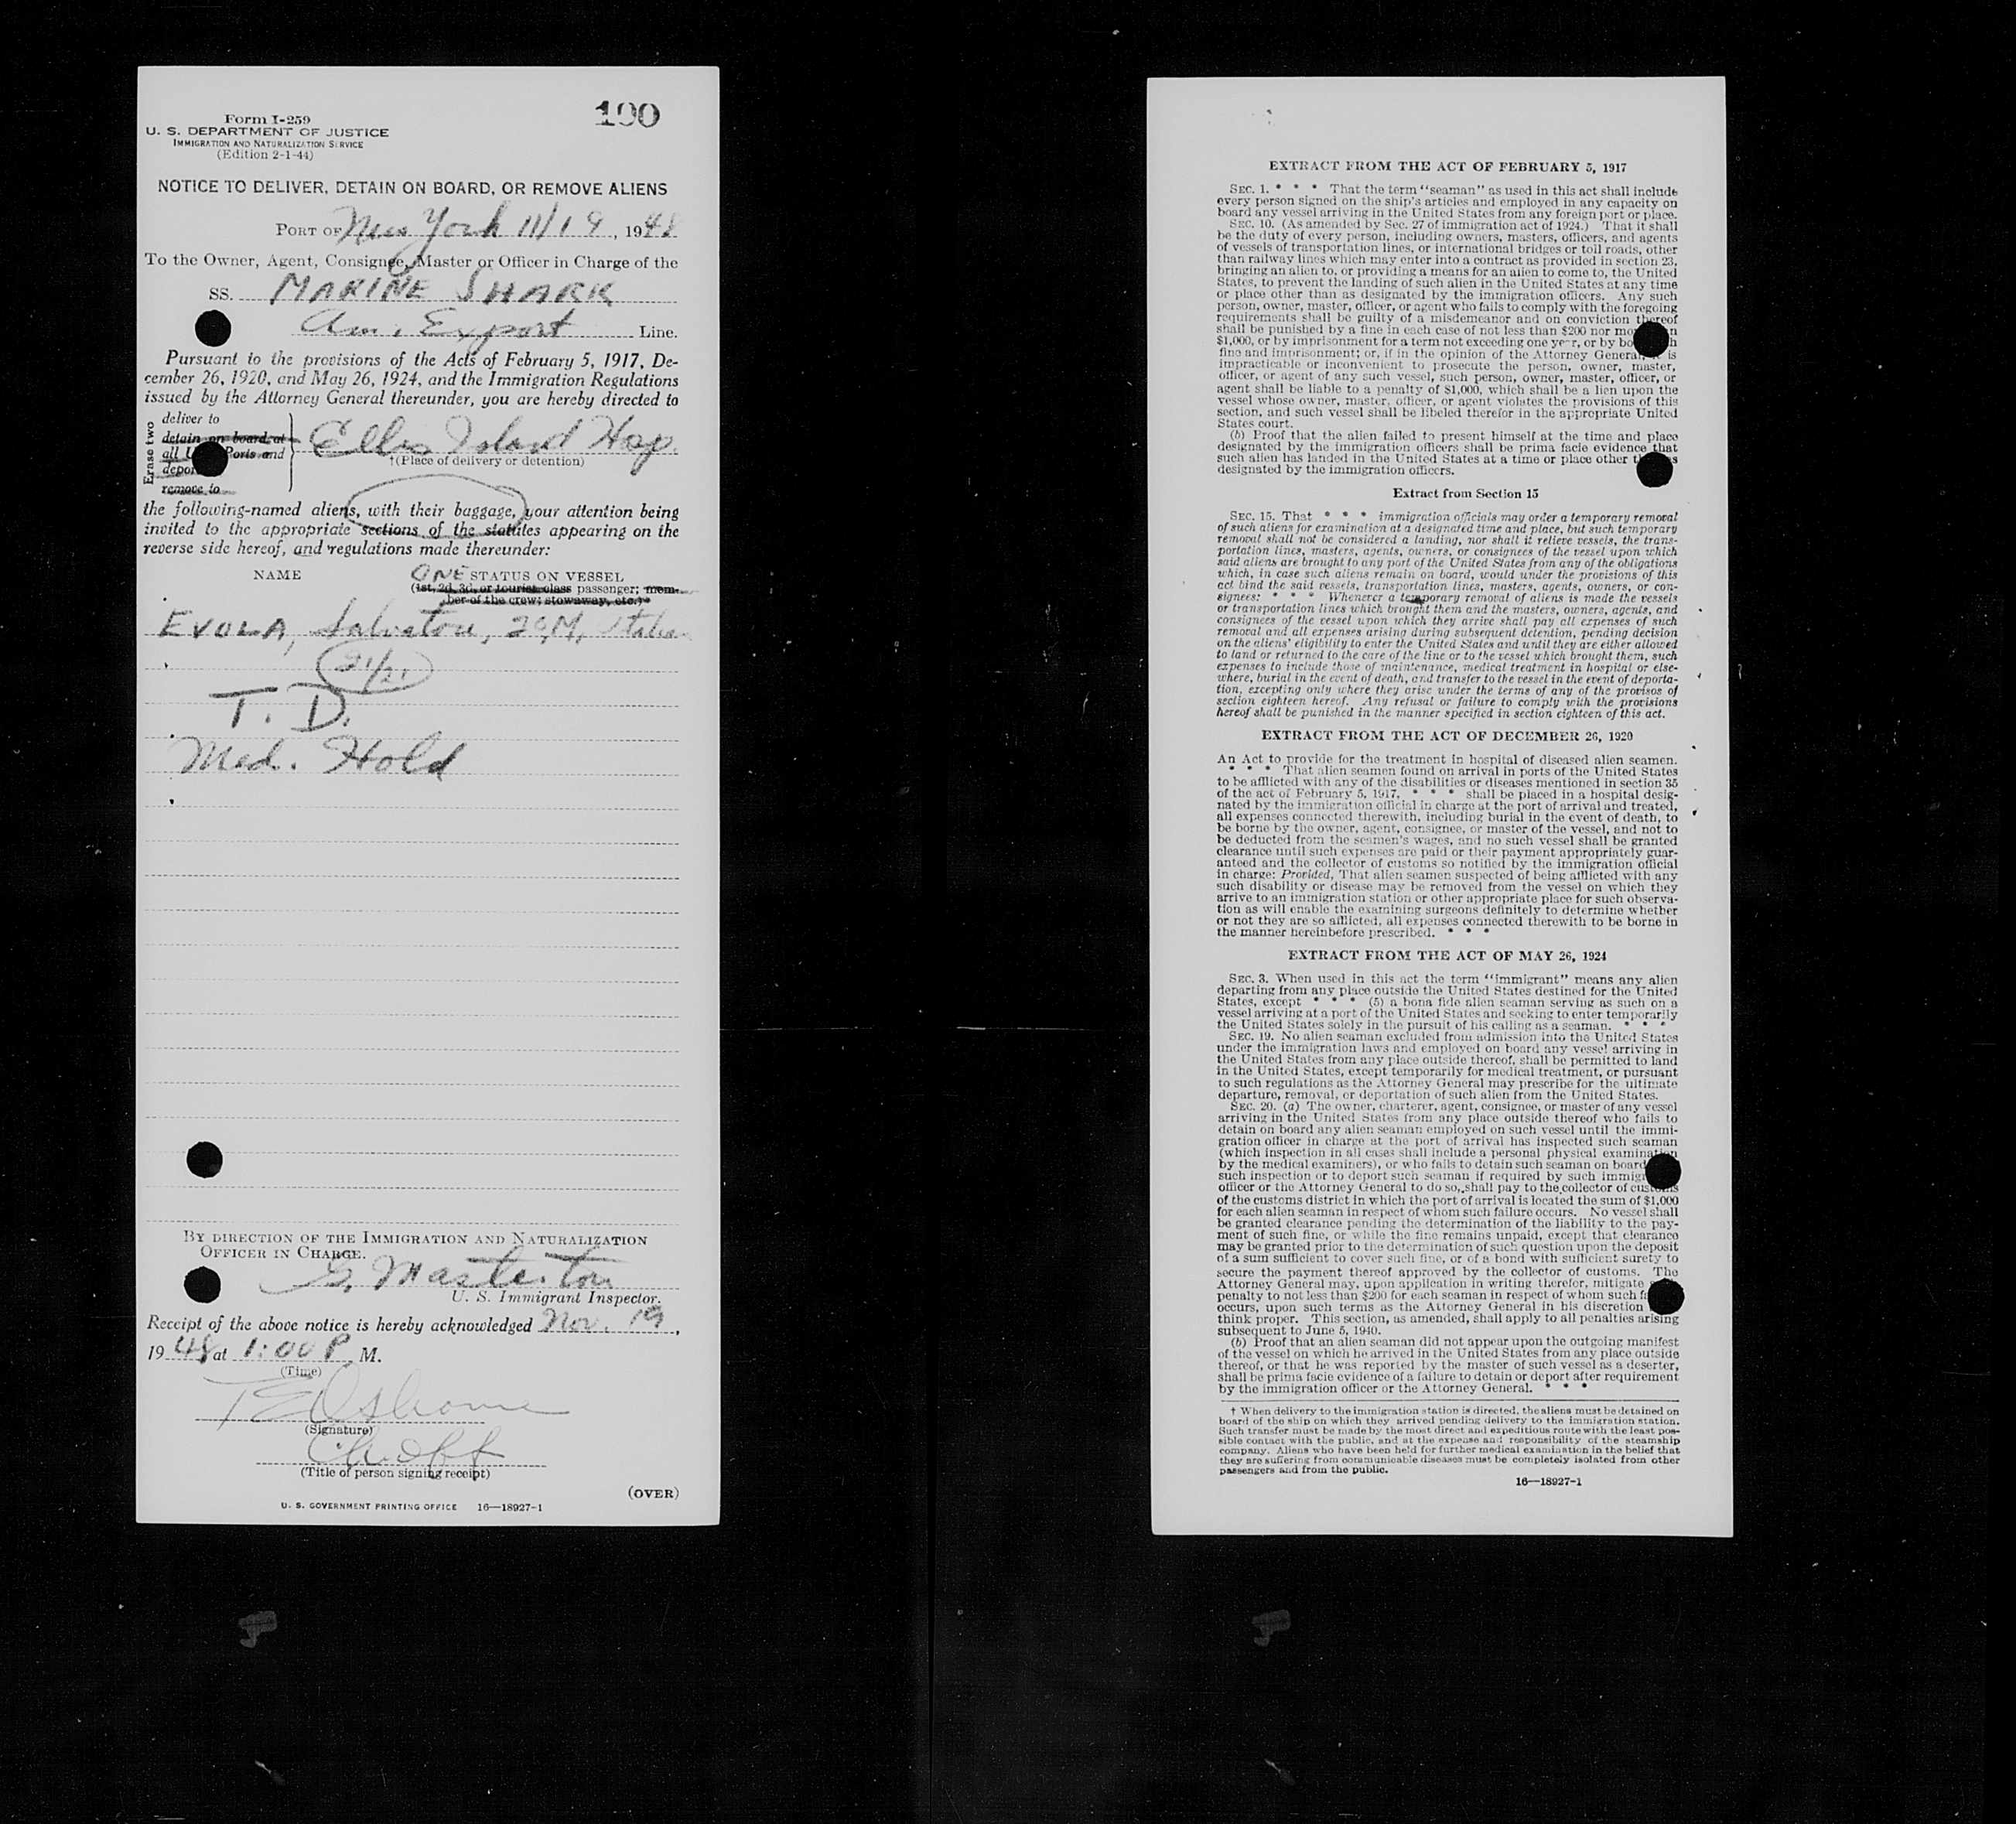 190
Form I-259
U. S. DEPARTMENT OF JUSTICE
IMMIGRATION AND NATURALIZATION SERVICE
(Edition 2-1-44)
NOTICE TO DELIVER, DETAIN ON BOARD, OR REMOVE ALIENS
PORT OF New York 11/19, 1948
To the Owner, Agent, Consignee, Master or Officer in Charge of the
SS. MARINE SHARK
Am. Export Line.
Pursuant to the provisions of the Acts of February 5, 1917, De-
cember 26, 1920, and May 26, 1924, and the Immigration Regulations
issued by the Attorney General thereunder, you are hereby directed to
Erase two
deliver to
detain on board at
all U Ports and
depor
remove to
Ellis Island Hosp.
†(Place of delivery or detention)
the following-named aliens, with their baggage, your attention being
invited to the appropriate sections of the statutes appearing on the
reverse side hereof, and regulations made thereunder:
NAME ONE STATUS ON VESSEL
(1st, 2d, 3d, or tourist class passenger; mem-
ber of the crew; stowaway, etc.)
EVOLA, Salvatore, 20, M, Italian
21/21
T. D.
Med. Hold
BY DIRECTION OF THE IMMIGRATION AND NATURALIZATION
OFFICER IN CHARGE.
G. Masterton
U. S. Immigrant Inspector.
Receipt of the above notice is hereby acknowledged Nov. 19,
1948 at 1:00 P. M.
(Time)
T E Osborne
(Signature)
Ch Off
(Title of person signing receipt)
(OVER)
U. S. GOVERNMENT PRINTING OFFICE 16—18927-1
EXTRACT FROM THE ACT OF FEBRUARY 5, 1917
SEC. 1. * * * That the term “seaman” as used in this act shall include
every person signed on the ship's articles and employed in any capacity on
board any vessel arriving in the United States from any foreign port or place.
SEC. 10. (As amended by Sec. 27 of immigration act of 1924.) That it shall
be the duty of every person, including owners, masters, officers, and agents
of vessels of transportation lines, or international bridges or toll roads, other
than railway lines which may enter into a contract as provided in section 23,
bringing an alien to, or providing a means for an alien to come to, the United
States, to prevent the landing of such alien in the United States at any time
or place other than as designated by the immigration officers. Any such
person, owner, master, officer, or agent who fails to comply with the foregoing
requirements shall be guilty of a misdemeanor and on conviction thereof
shall be punished by a fine in each case of not less than $200 nor mo n
$1,000, or by imprisonment for a term not exceeding one year, or by bo h
fine and imprisonment; or, if in the opinion of the Attorney General, it is
impracticable or inconvenient to prosecute the person, owner, master,
officer, or agent of any such vessel, such person, owner, master, officer, or
agent shall be liable to a penalty of $1,000, which shall be a lien upon the
vessel whose owner, master, officer, or agent violates the provisions of this
section, and such vessel shall be libeled therefor in the appropriate United
States court.
(b) Proof that the alien failed to present himself at the time and place
designated by the immigration officers shall be prima facie evidence that
such alien has landed in the United States at a time or place other t s
designated by the immigration officers.
Extract from Section 15
SEC. 15. That * * * immigration officials may order a temporary removal
of such aliens for examination at a designated time and place, but such temporary
removal shall not be considered a landing, nor shall it relieve vessels, the trans-
portation lines, masters, agents, owners, or consignees of the vessel upon which
said aliens are brought to any port of the United States from any of the obligations
which, in case such aliens remain on board, would under the provisions of this
act bind the said vessels, transportation lines, masters, agents, owners, or con-
signees: * * * Whenever a temporary removal of aliens is made the vessels
or transportation lines which brought them and the masters, owners, agents, and
consignees of the vessel upon which they arrive shall pay all expenses of such
removal and all expenses arising during subsequent detention, pending decision
on the aliens' eligibility to enter the United States and until they are either allowed
to land or returned to the care of the line or to the vessel which brought them, such
expenses to include those of maintenance, medical treatment in hospital or else-
where, burial in the event of death, and transfer to the vessel in the event of deporta-
tion, excepting only where they arise under the terms of any of the provisos of
section eighteen hereof. Any refusal or failure to comply with the provisions
hereof shall be punished in the manner specified in section eighteen of this act.
EXTRACT FROM THE ACT OF DECEMBER 26, 1920
An Act to provide for the treatment in hospital of diseased alien seamen.
* * * That alien seamen found on arrival in ports of the United States
to be afflicted with any of the disabilities or diseases mentioned in section 35
of the act of February 5, 1917, * * * shall be placed in a hospital desig-
nated by the immigration official in charge at the port of arrival and treated,
all expenses connected therewith, including burial in the event of death, to
be borne by the owner, agent, consignee, or master of the vessel, and not to
be deducted from the seamen's wages, and no such vessel shall be granted
clearance until such expenses are paid or their payment appropriately guar-
anteed and the collector of customs so notified by the immigration official
in charge: Provided, That alien seamen suspected of being afflicted with any
such disability or disease may be removed from the vessel on which they
arrive to an immigration station or other appropriate place for such observa-
tion as will enable the examining surgeons definitely to determine whether
or not they are so afflicted, all expenses connected therewith to be borne in
the manner hereinbefore prescribed. * * *
EXTRACT FROM THE ACT OF MAY 26, 1924
SEC. 3. When used in this act the term “immigrant” means any alien
departing from any place outside the United States destined for the United
States, except * * * (5) a bona fide alien seaman serving as such on a
vessel arriving at a port of the United States and seeking to enter temporarily
the United States solely in the pursuit of his calling as a seaman. * * *
SEC. 19. No alien seaman excluded from admission into the United States
under the immigration laws and employed on board any vessel arriving in
the United States from any place outside thereof, shall be permitted to land
in the United States, except temporarily for medical treatment, or pursuant
to such regulations as the Attorney General may prescribe for the ultimate
departure, removal, or deportation of such alien from the United States.
SEC. 20. (a) The owner, charterer, agent, consignee, or master of any vessel
arriving in the United States from any place outside thereof who fails to
detain on board any alien seaman employed on such vessel until the immi-
gration officer in charge at the port of arrival has inspected such seaman
(which inspection in all cases shall include a personal physical examination
by the medical examiners), or who fails to detain such seaman on board
such inspection or to deport such seaman if required by such immigr
officer or the Attorney General to do so, shall pay to the collector of customs
of the customs district in which the port of arrival is located the sum of $1,000
for each alien seaman in respect of whom such failure occurs. No vessel shall
be granted clearance pending the determination of the liability to the pay-
ment of such fine, or while the fine remains unpaid, except that clearance
may be granted prior to the determination of such question upon the deposit
of a sum sufficient to cover such fine, or of a bond with sufficient surety to
secure the payment thereof approved by the collector of customs. The
Attorney General may, upon application in writing therefor, mitigate
penalty to not less than $200 for each seaman in respect of whom such fa
occurs, upon such terms as the Attorney General in his discretion
think proper. This section, as amended, shall apply to all penalties arising
subsequent to June 5, 1940.
(b) Proof that an alien seaman did not appear upon the outgoing manifest
of the vessel on which he arrived in the United States from any place outside
thereof, or that he was reported by the master of such vessel as a deserter,
shall be prima facie evidence of a failure to detain or deport after requirement
by the immigration officer or the Attorney General. * * *
† When delivery to the immigration station is directed, the aliens must be detained on
board of the ship on which they arrived pending delivery to the immigration station.
Such transfer must be made by the most direct and expeditious route with the least pos-
sible contact with the public, and at the expense and responsibility of the steamship
company. Aliens who have been held for further medical examination in the belief that
they are suffering from communicable diseases must be completely isolated from other
passengers and from the public.
16—18927-1